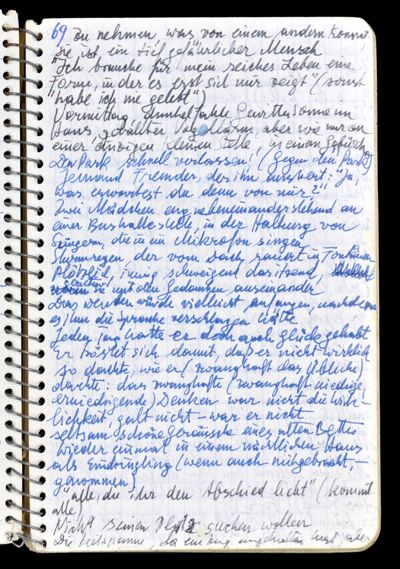 69 zu nehmen, was von einem andern kommt
Sie ist ein tief gefährlicher Mensch
"Ich brauche für mein reiches Leben eine
Form, in der es erst sich mir zeigt" (sonst
"habe ich nie gelebt")
Vormittag,
Haus, aber wie nur an
einer einzigen kleinen Stelle, in einem
Den Park schnell verlassen! (gegen den Park)
Jemand Fremder, der ihm antwortet: "Ja,
was erwartest du denn von mir?"
Zwei Mädchen eng nebeneinanderstehend an
einer Bushaltestelle, in der Haltung von
Sängern, die in ein Mikrofon singen
Sturmregen, der vom Dach rauscht in Fontänen
Plötzlich, innig schweigend dasitzend,
sie mit den Gedanken auseinander
Das würde vielleicht anfangen, nachdem
es ihm die Sprache verschlagen hätte
Jeden Tag hatte er doch auch Glück gehabt
Er tröstet sich damit, daß er nicht wirklich
so dachte, wie er (zwanghaft das Übliche)
dachte: das zwanghafte (zwanghaft niedrige,
erniedrigende) Denken war nicht die Wirk-
lichkeit, galt nicht – war er nicht
seltsam schöne Geräusche eines alten Bettes
Wieder einmal in einem nächtlichen Haus
als Eindringling (wenn auch mitgebracht, –
genommen)
"alle, die ihr den Abschied liebt" (kommt
alle)
Nicht seinen Platz suchen wollen
Die Zeitspanne, da ein Zug angehalten hat, aber